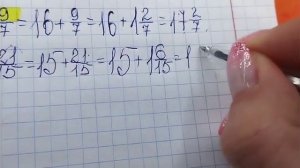 9/7 = 16 + 9/7 = 16 + 1 2/7 = 17 2/7.
21/15 = 15 + 21/15 = 15 + 1 6/15 = 1